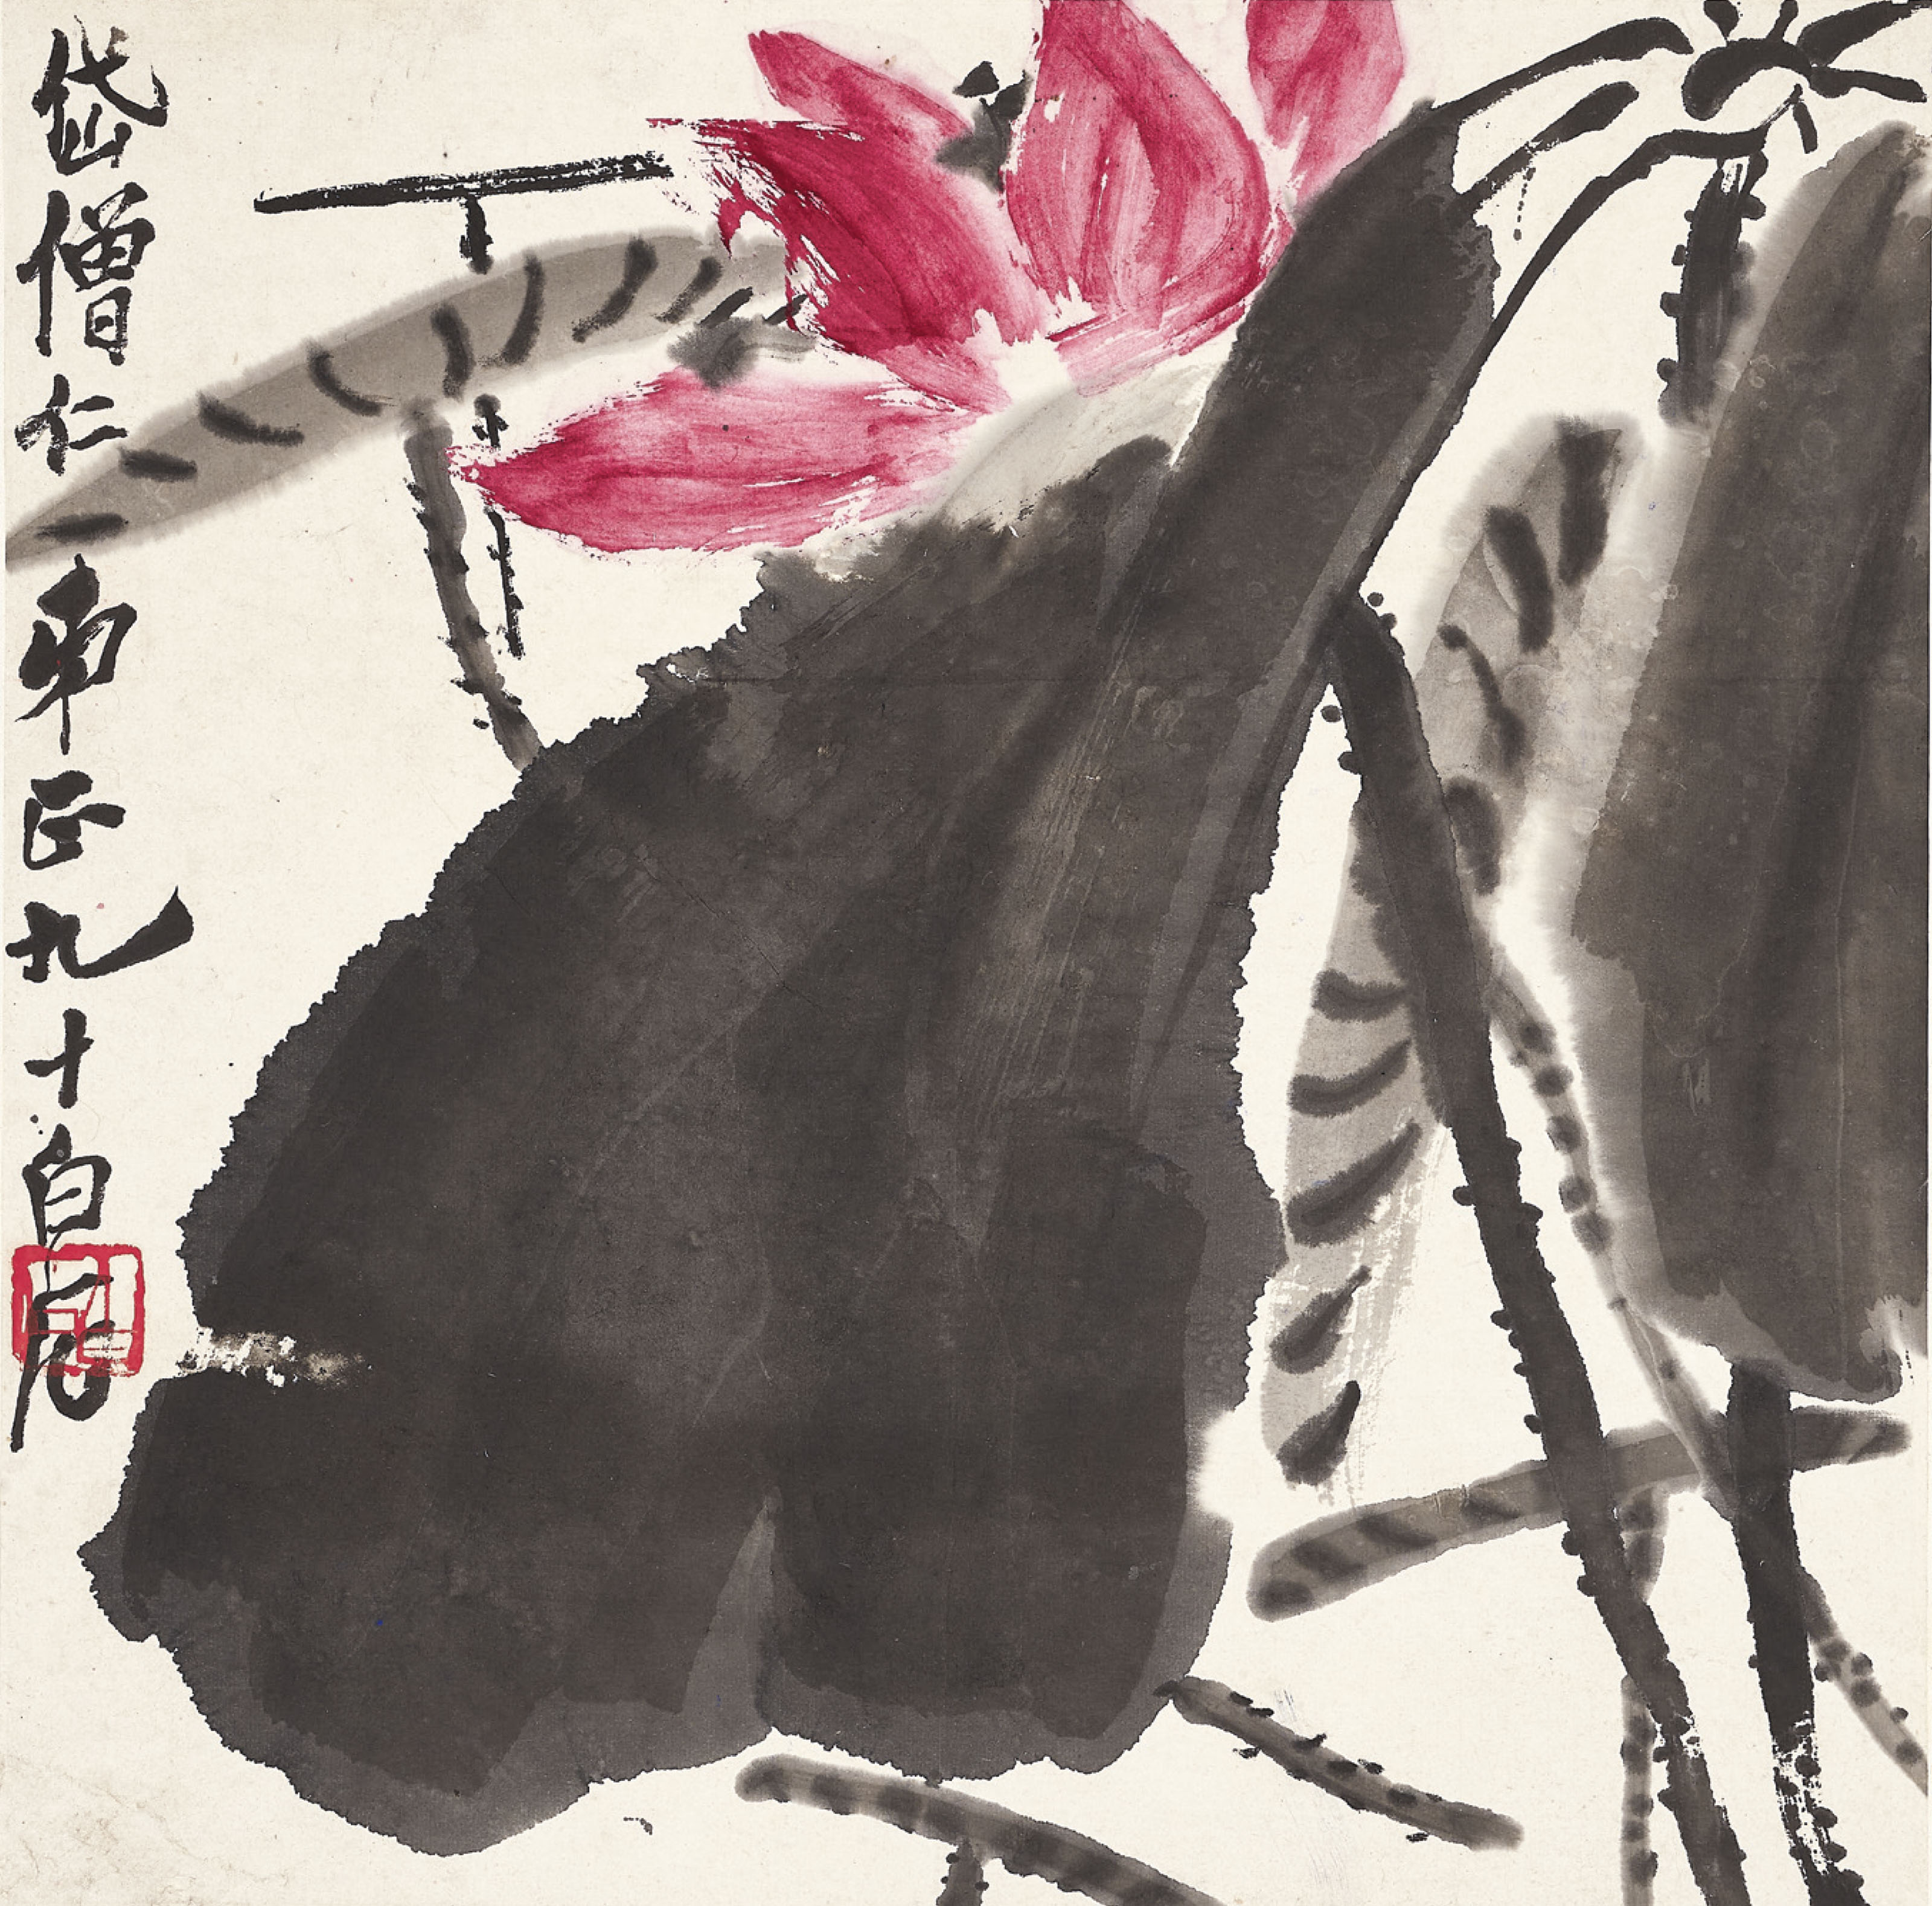 岱僧仁弟正九十白石